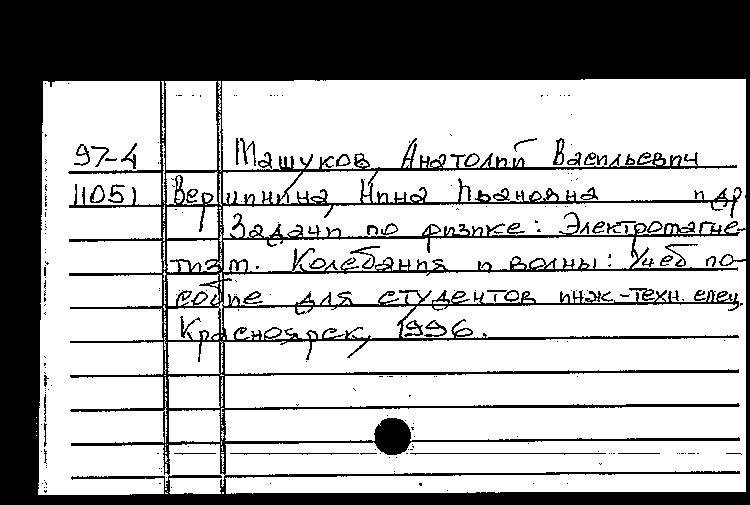 97-4 Машуков, Анатолий Васильевич
11051 Вершинина, Нина Ивановна и др.
Задачи по физике: Электромагне-
тизм. Колебания и волны: Учеб. по-
собие для студентов инж.-техн. спец.
Красноярск, 1996.